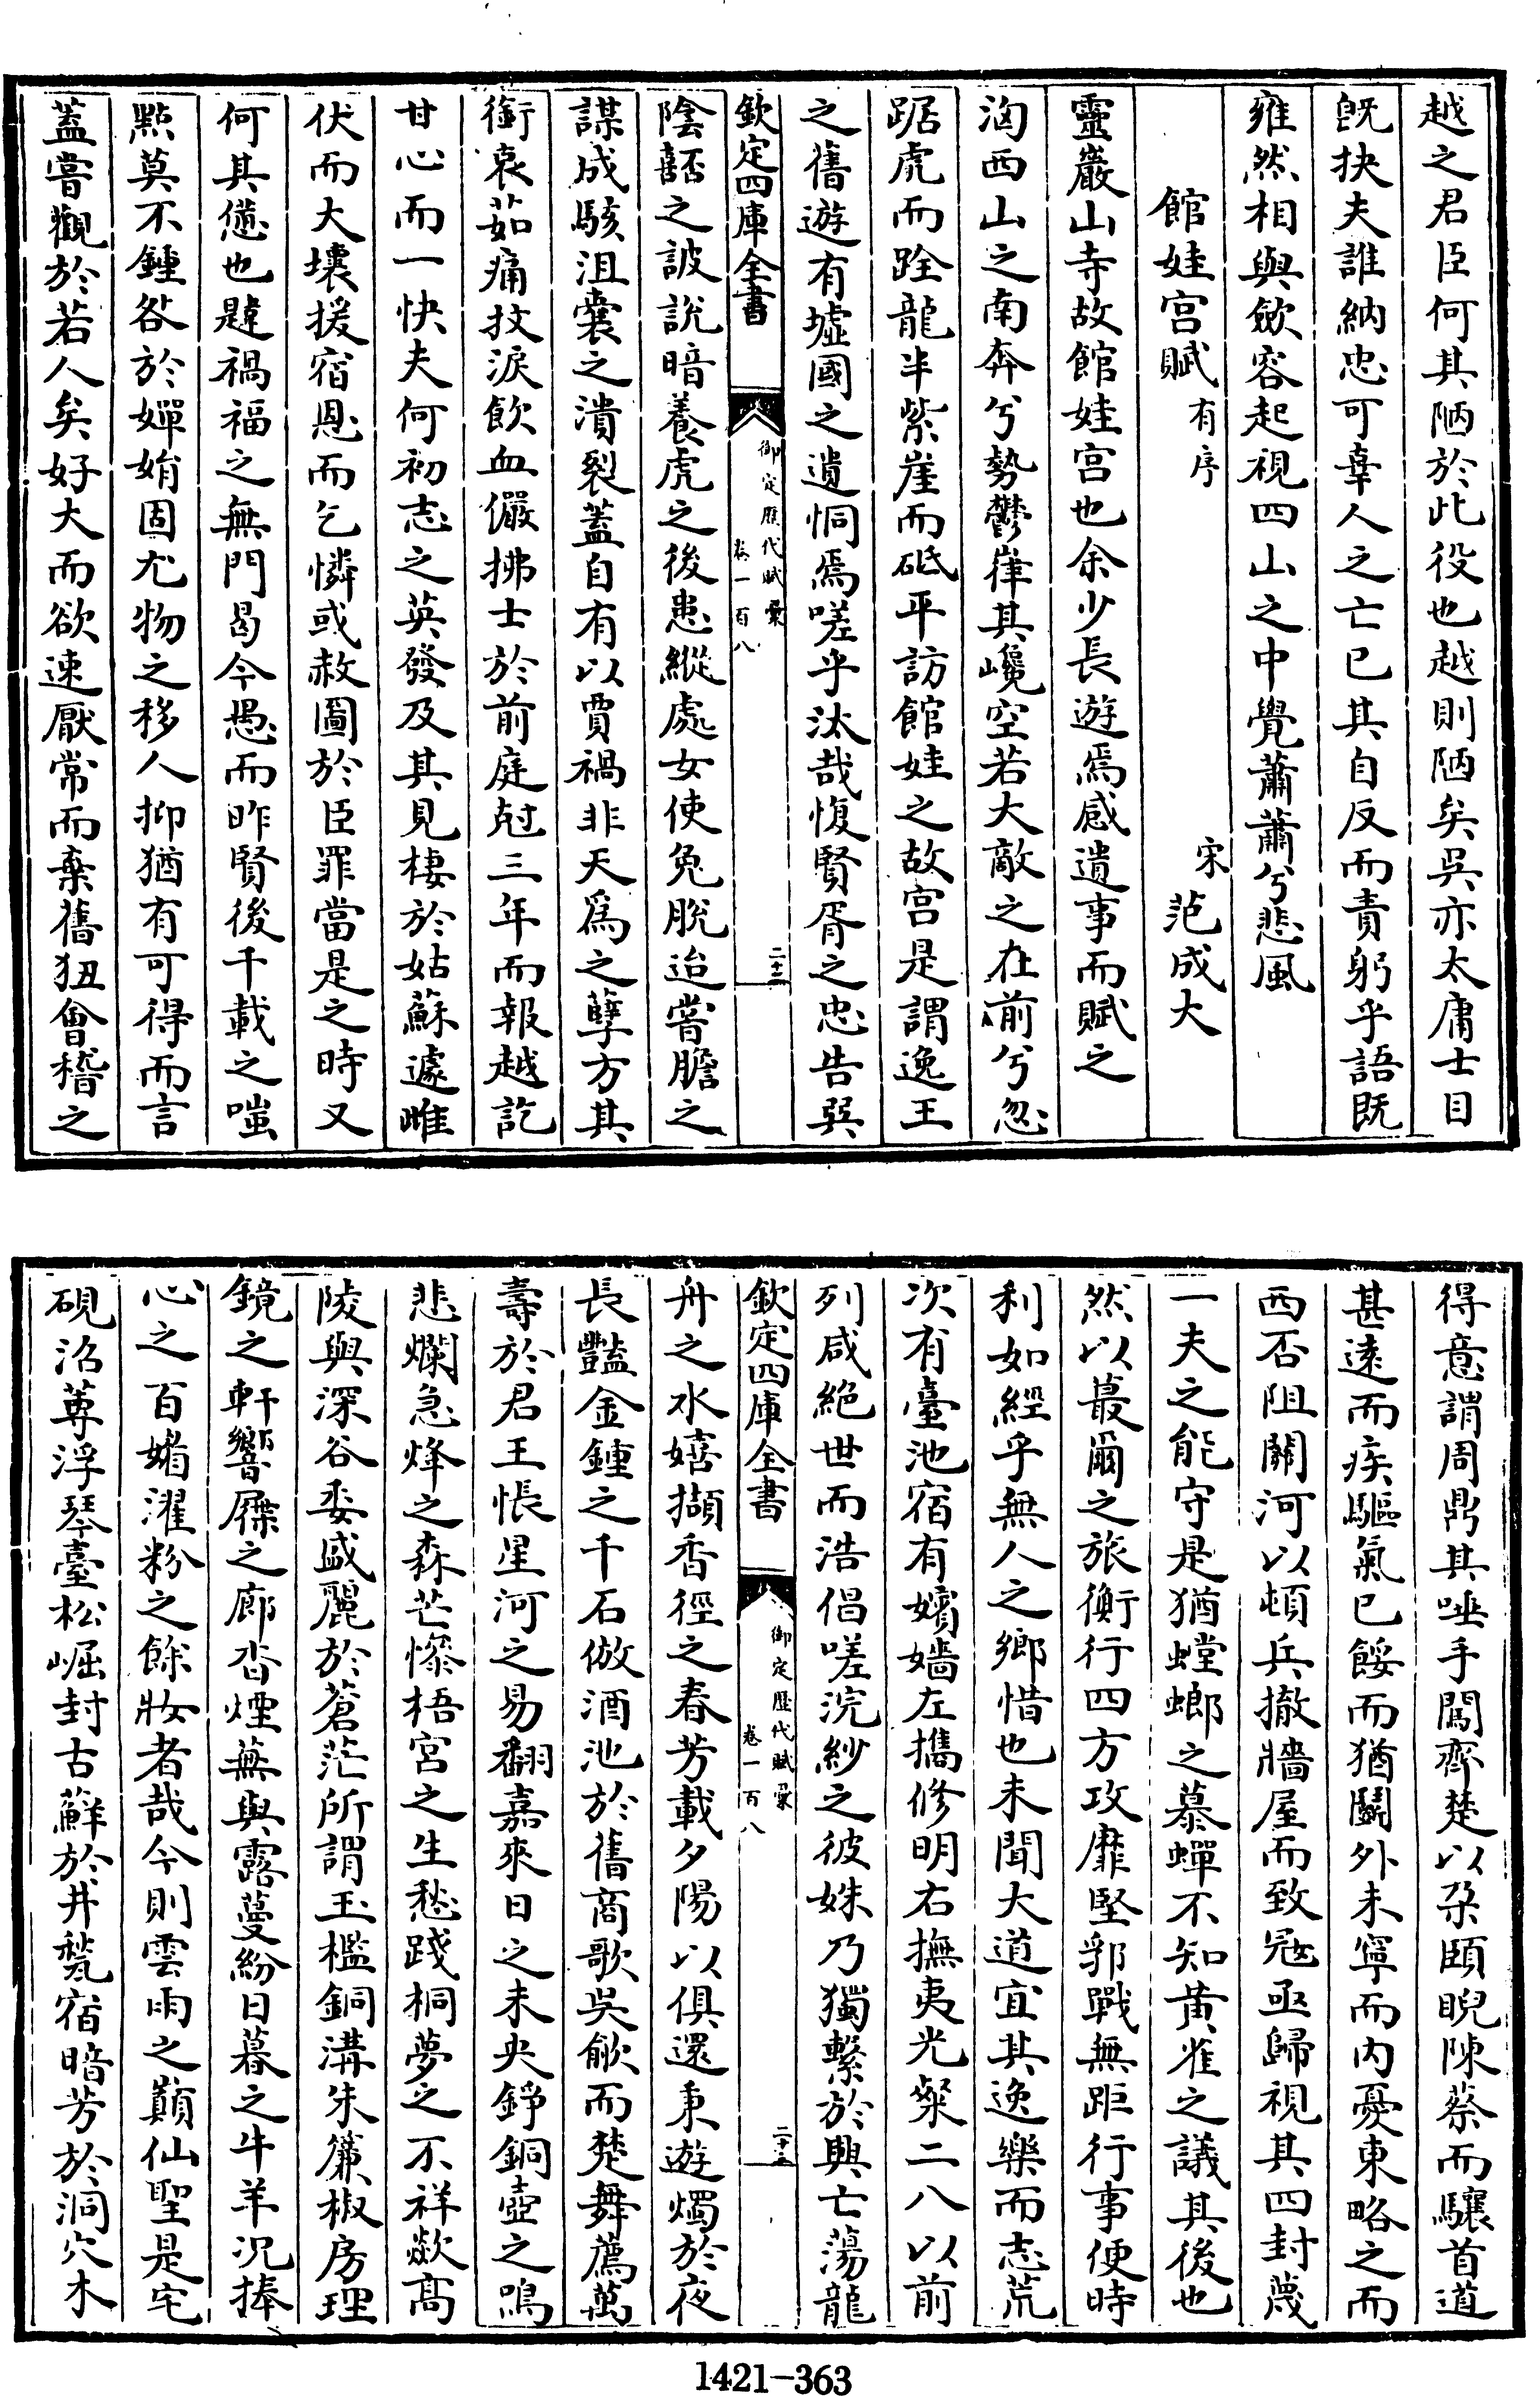 越之君臣何其陋於此役也越則陋矣吳亦太庸士目
旣抉夫誰納忠可辜人之亡已其自反而責躬乎語既
雍然相與斂容起視四山之中覺蕭蕭兮悲風
館娃宮賦有序
宋范成大
靈巖山寺故館娃宮也余少長遊焉感遺事而賦之
洶西山之南奔兮勢鬱嵂其巉空若大敵之在前兮忽
踞虎而跧龍半紫崖而砥平訪館娃之故宮是謂逸王
之舊遊有墟國之遺恫焉嗟乎汰哉愎賢胥之忠告巽
欽定四庫全書
御定歷代賦彙
卷一百八
二十二
陰嚭之詖說暗養虎之後患縱處女使兔脫迨嘗膽之
謀成駭沮囊之潰裂蓋自有以賈禍非天爲之孽方其
銜哀茹痛抆淚飲血儼拂士於前庭尅三年而報越訖
甘心而一快夫何初志之英發及其見棲於姑蘇遽雌
伏而大壞援宿恩而乞憐或赦圖於臣罪當是之時又
何其憊也韙禍福之無門曷今愚而昨賢後千載之嗤
點莫不鍾咎於嬋娟固尤物之移人抑猶有可得而言
蓋嘗觀於若人矣好大而欲速厭常而棄舊狃會稽之
得意謂周鼎其唾手闖齊楚以朶頤睨陳蔡而驤首道
甚遠而疾驅氣已餒而猶鬭外未寧而內憂東略之而
西否阻關河以頓兵撤牆屋而致冦亟歸視其四封蔑
一夫之能守是猶螳螂之慕蟬不知黃雀之議其後也
然以蕞爾之旅衡行四方攻靡堅郛戰無距行事便時
利如經乎無人之鄉惜也未聞大道宜其逸樂而志荒
次有臺池宿有嬪嬙左攜修明右撫夷光粲二八以前
列咸絕世而浩倡嗟浣紗之彼姝乃獨繫於興亡蕩龍
欽定四庫全書
御定歷代賦彙
卷一百八
二十三
舟之水嬉擷香徑之春芳載夕陽以俱還秉遊燭於夜
長豔金鍾之千石倣酒池於舊商歌吳歈而楚舞薦萬
壽於君王悵星河之易翻嘉來日之未央錚銅壺之鳴
悲爛急烽之森芒慘梧宮之生愁踐桐夢之不祥歘髙
陵與深谷委盛麗於蒼茫所謂玉檻銅溝朱簾椒房理
鏡之軒響屧之廊沓煙蕪與露蔓紛日暮之牛羊況捧
心之百媚濯粉之餘妝者哉今則雲雨之巔仙聖是宅
硯沼蓴浮琴臺松崛封古蘚於井甃宿暗芳於洞穴木
1421-363